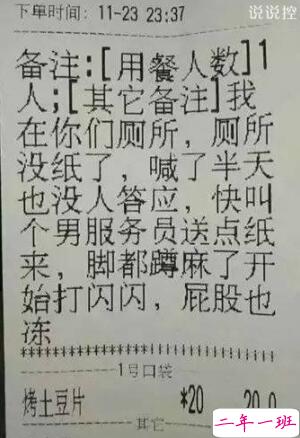 说说控
下单时间：11-23 23:37
备注:[用餐人数]1
人;[其它备注]我
在你们厕所，厕所
没纸了，喊了半天
也没人答应，快叫
个男服务员送点纸
来，脚都蹲麻了开
始打闪闪，屁股也
冻
1号口袋
烤土豆片 *20 20.0
其它
二年一班